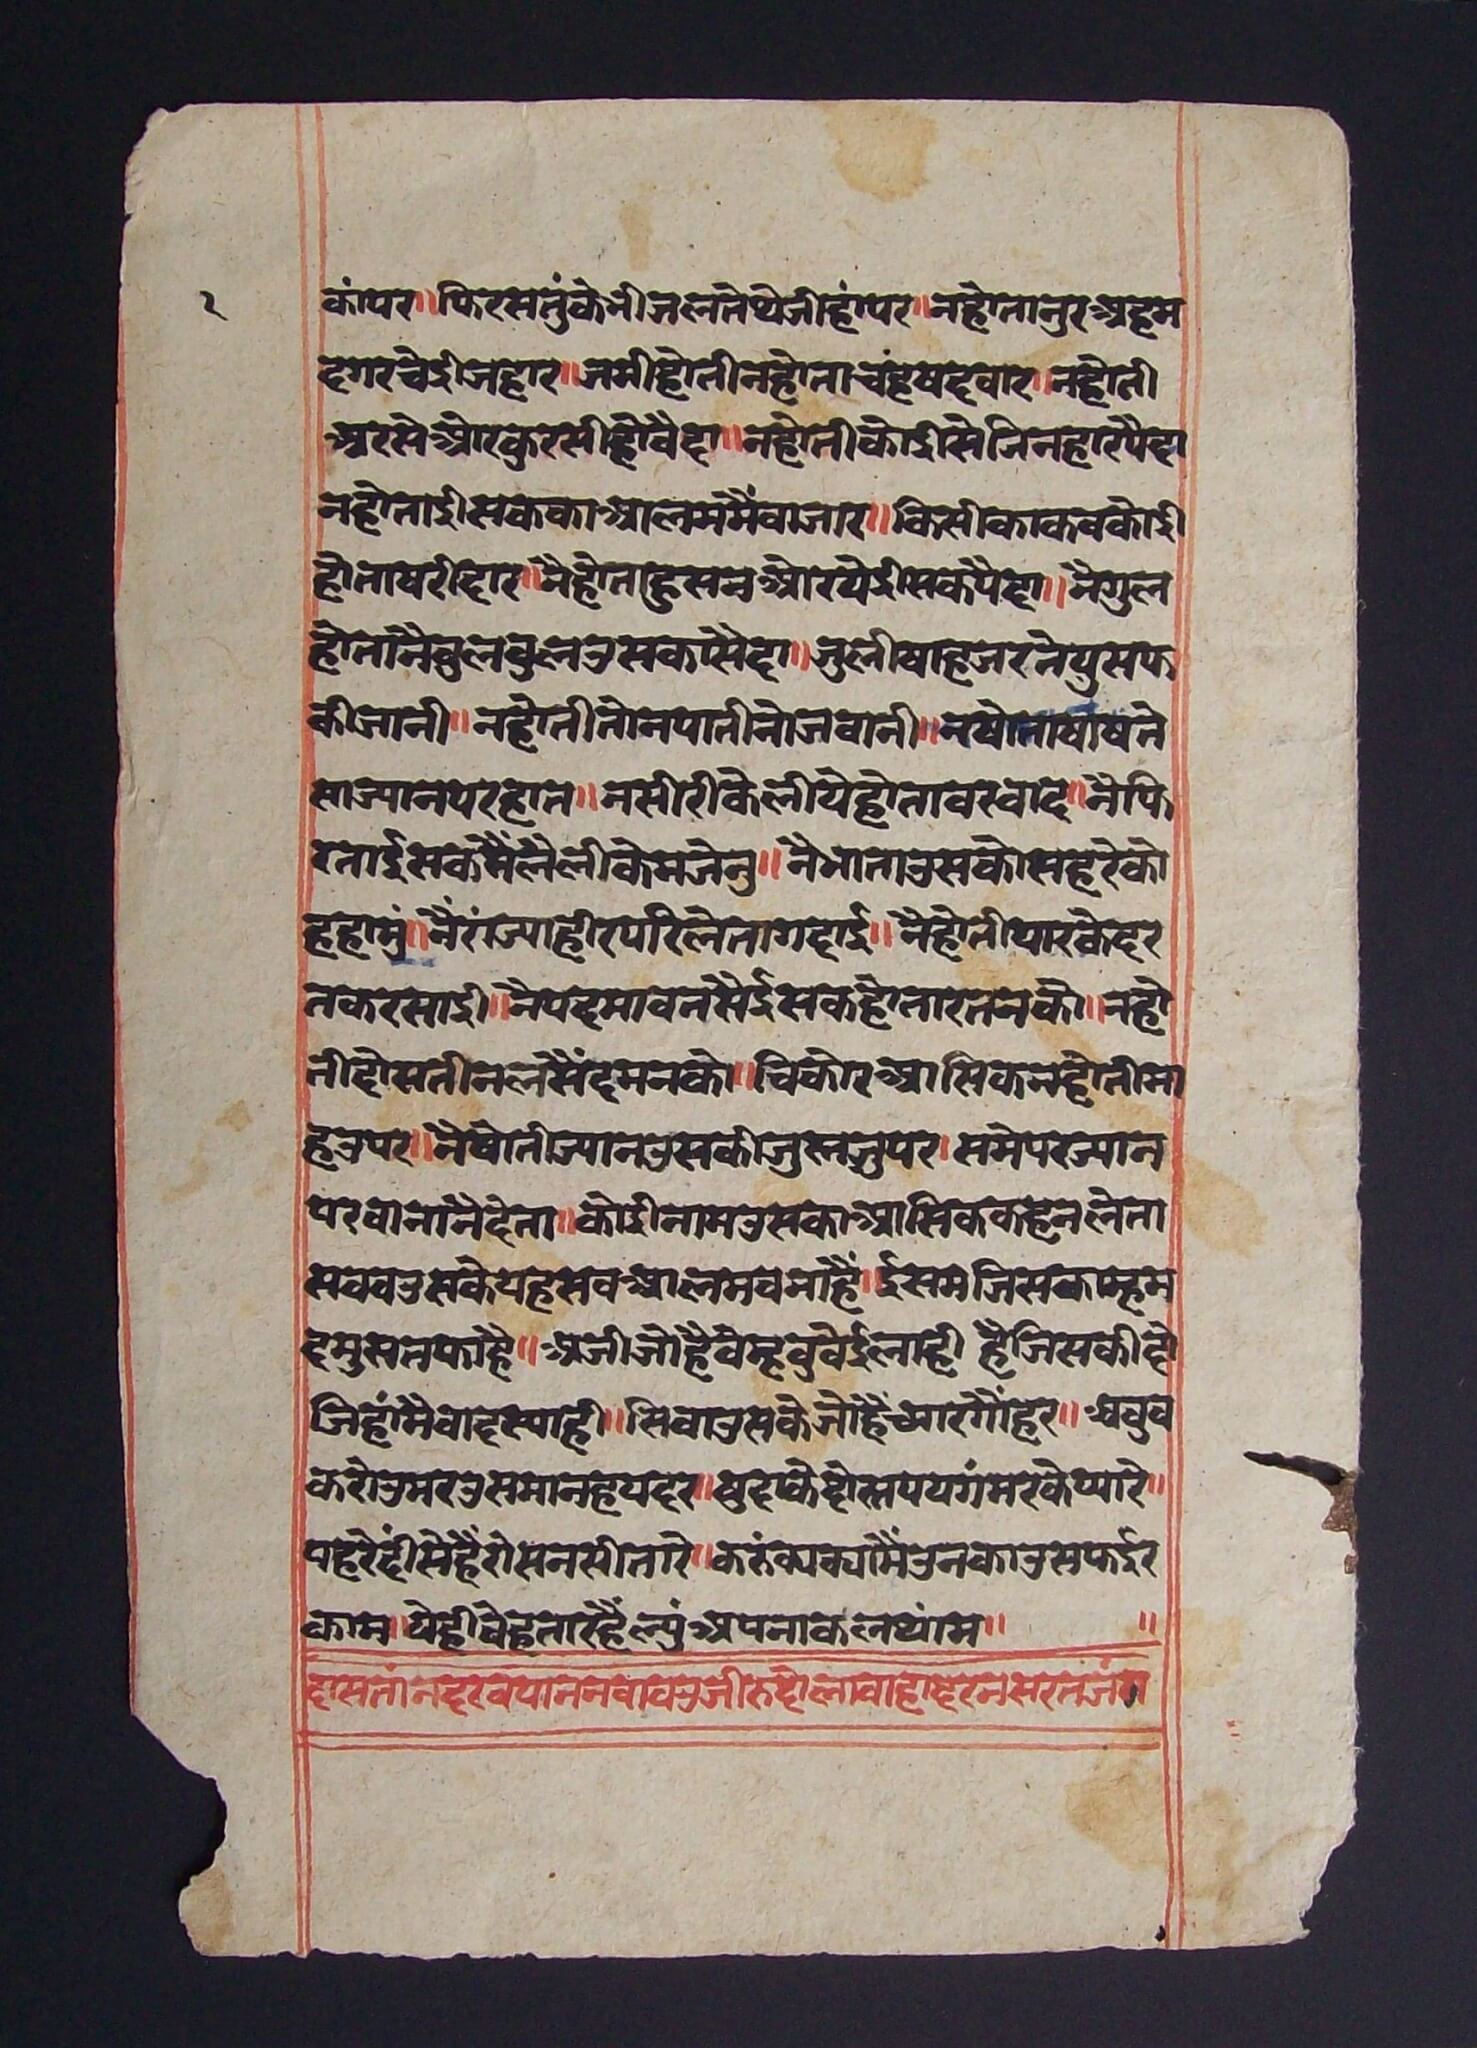 २
कांपर॥ फिरसतुंकेभीजलतेथेजीहांपर॥ नहोतानुरअहम
दगरचेईीजहार॥ जमीहोतीनहोताचंहषहवार॥ नहोती
अरसेओरकुरसीहोवैदा॥ नहोतीकोईीसेजिनहारपैदा
नहोताईीसकका आलममैंवाजार॥ किसीकाकवकोईी
होताषरीदार॥ नैहोताहुसनओरयेईीसकपैदा॥ नैगुल
होतानैवुलवुलउसकासैदा॥ जुलीषाहजरतेयुसफ
कीजानी॥ नहोतीतोनपातीनोजवानी॥ नषोताषोषते
साज्यानपरहात॥ नसीरीकेलीयेहोतावरवाद॥ नैफि
रताईसकमैंलैलीकेमजेनु॥ नैभाताउसकोसहरेको
हहामुं॥ नैंरांज्याहीरपरिलेतागदाई॥ नैहोतीयारकेदर
तकरसाईी॥ नैपदमावतसेईसकहोतारतनको॥ नहो
तीहोसतीनलसैंदमनको॥ चिकोरआसिकनहोतीमा
हउपर॥ नैषोतीज्यानउसकीजुलजुपर। समेपरज्यान
परवानानैदेता॥ कोईीनामउसकाआसिककहेनलेता
सववउसकेयहसवआलमवनाहै। ईसमजिसकाम्हम
दमुसतफाहै॥ अजीजोहैवेम्हवुवेईलाही हैजिसकीदो
जिहांमैवादस्याही॥ सिवाउसकेजोहैंआरगौंहर॥ अवुव
करोउमरउसमानहयदर॥ षुदाकेदोस्तपयगंमरकेप्यारे॥
पहरेदींसेहैंरोसनसीतारे॥ करुंक्यक्यामैंउनकाउसफईर
काम॥ येहीवेहतारहैंल्युंअपनाकलथांम॥ ॥
दासतांनदरवयाननवावउजीरुदोलावाहादरनसरतजंग